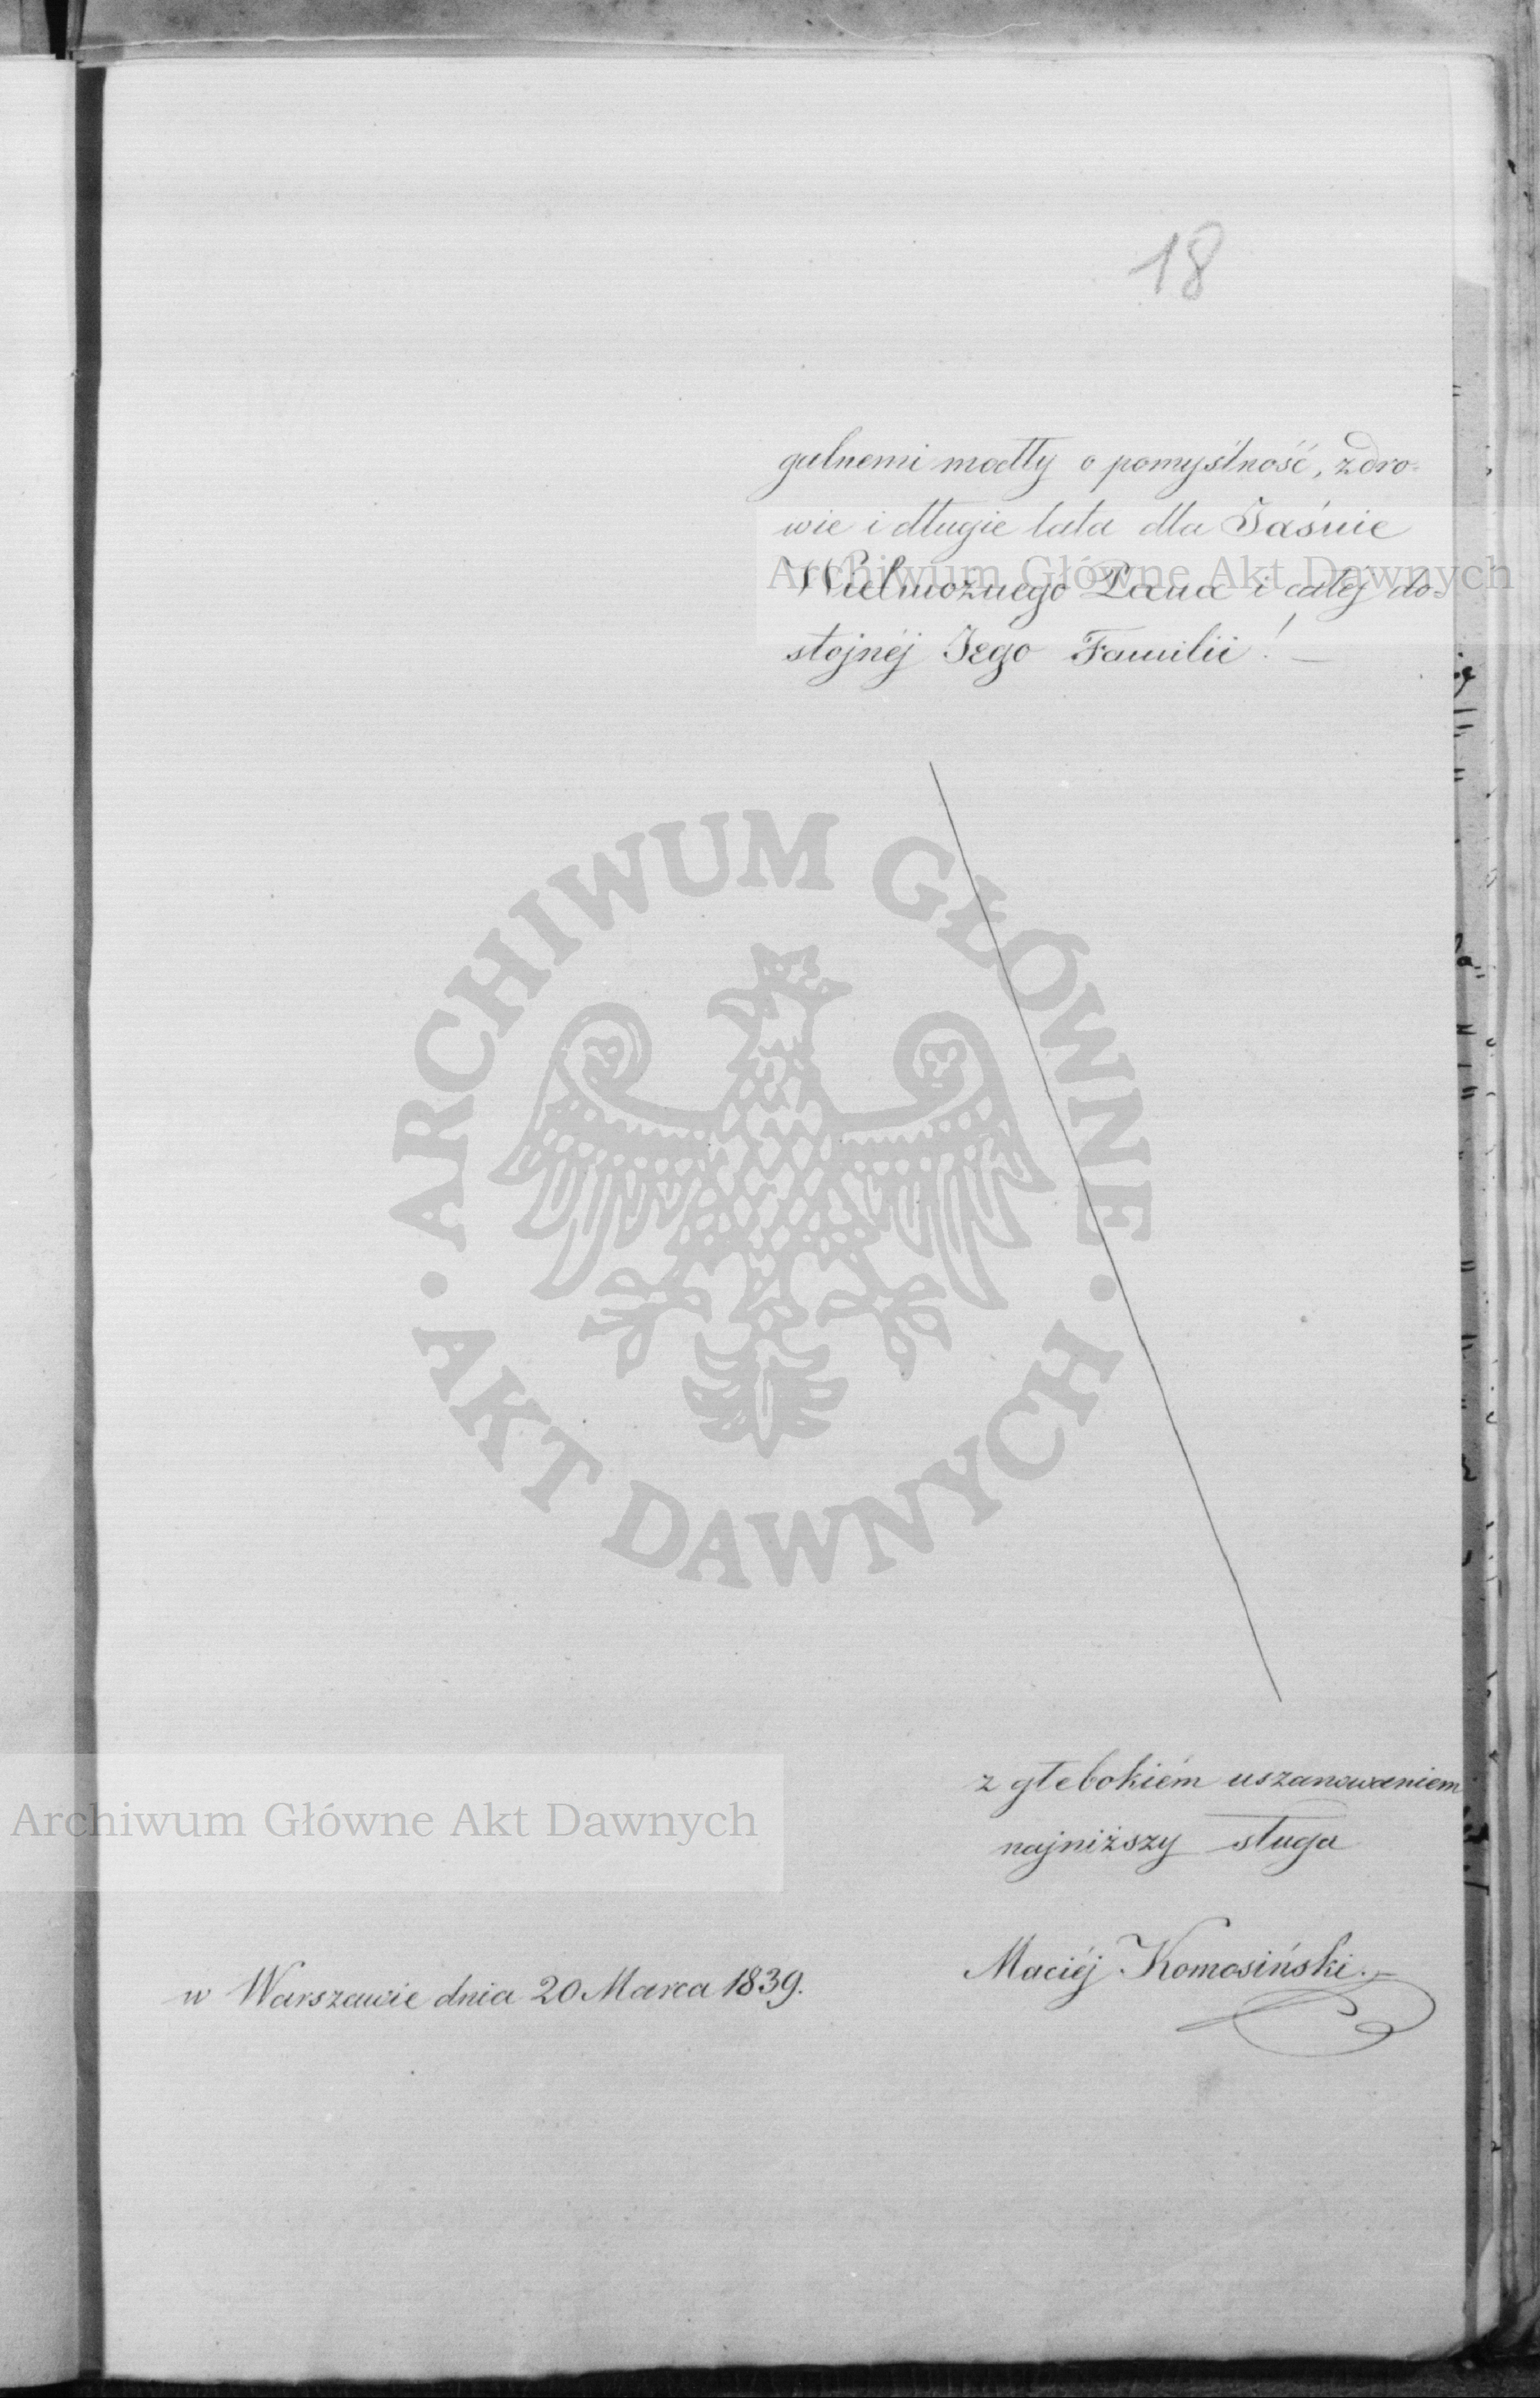 18
galnemi modły o pomyślność, zdro-
wie i długie lata dla Jaśnie
Wielmożnego Pana i całéj do-
stojnéj Jego Familii! —
z głebokiém uszanowaniem
najniższy sługa
Maciéj Komosiński.
w Warszawie dnia 20 Marca 1839.
Archiwum Główne Akt Dawnych
ARCHIWUM GŁÓWNE
AKT DAWNYCH
Archiwum Główne Akt Dawnych